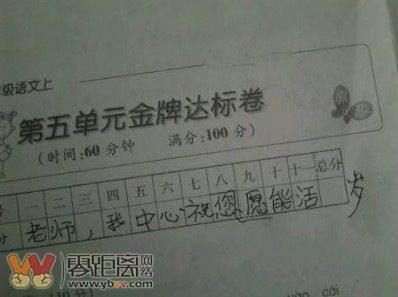 级语文上
第五单元金牌达标卷
(时间:60分钟 满分:100分)
一 二 三 四 五 六 七 八 九 十 十一 总分
分 老师,我中心祝您愿能活 岁
零距离网络
www.ybvv.com